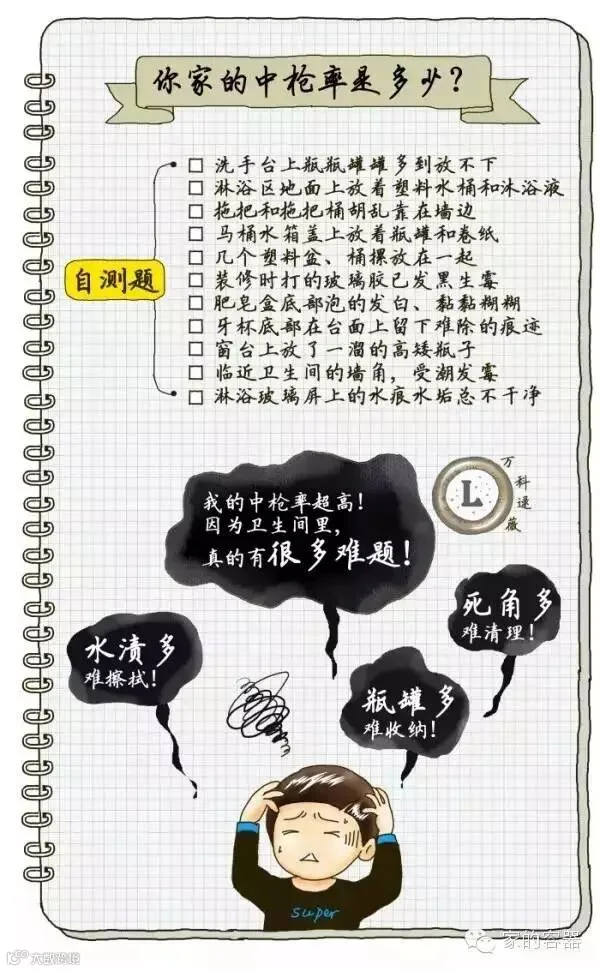 你家的中枪率是多少?
自测题
□ 洗手台上瓶瓶罐罐多到放不下
□ 淋浴区地面上放着塑料水桶和沐浴液
□ 拖把和拖把桶胡乱靠在墙边
□ 马桶水箱盖上放着瓶罐和卷纸
□ 几个塑料盆、桶摞放在一起
□ 装修时打的玻璃胶已发黑生霉
□ 肥皂盒底部泡的发白、黏黏糊糊
□ 牙杯底部在台面上留下难除的痕迹
□ 窗台上放了一溜的高矮瓶子
□ 临近卫生间的墙角，受潮发霉
□ 淋浴玻璃屏上的水痕水垢总不干净
我的中枪率超高!
因为卫生间里,
真的有很多难题!
L
万科逯薇
死角多
难清理!
水渍多
难擦拭!
瓶罐多
难收纳!
super
家的容器